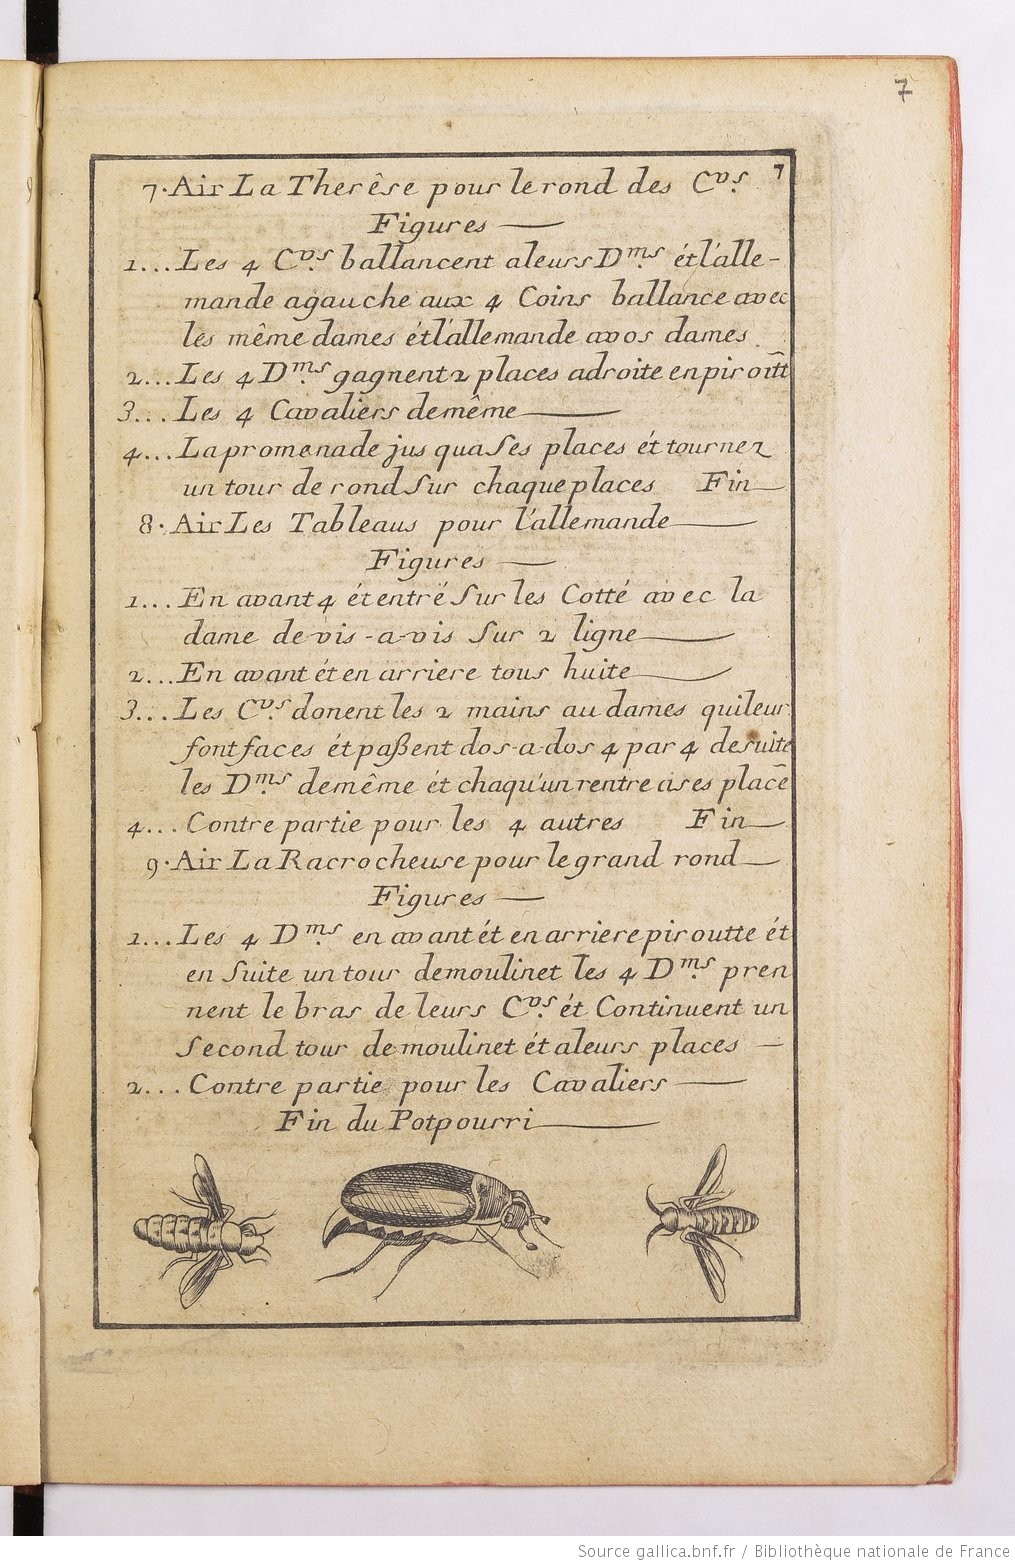 7
7
7. Air La Therêse pour le rond des C.vs
Figures
1... Les 4 C.vs ballancent aleurs D.ms ét l'alle-
mande agauche aux 4 Coins ballance avec
lès même dames ét l'allemande avos dames.
2... Les 4 D.ms gagnent 2 places adroite en piroitt
3... Les 4 Cavaliers demême
4... La promenade jus qua Ses places ét tournez
un tour de rond Sur chaque places Fin
8. Air Les Tableaus pour l'allemande
Figures
1... En avant 4 ét entrë Sur les Cotté avec la
dame de vis-a-vis Sur 2 ligne
2... En avant ét en arriere tous huite
3... Les C.vs donent les 2 mains au dames qui leur
font faces ét paßent dos-a-dos 4 par 4 desuite
les D.ms demême ét chaqu'un rentre a ses place
4... Contre partie pour les 4 autres Fin
9. Air La Racrocheuse pour le grand rond
Figures
1... Les 4 D.ms en avant ét en arriere piroutte ét
en Suite un tour demoulinet les 4 D.ms pren
nent le bras de leurs C.vs ét Continuent un
Second tour demoulinet ét aleurs places
2... Contre partie pour les Cavaliers
Fin du Potpourri
Source gallica.bnf.fr / Bibliothèque nationale de France